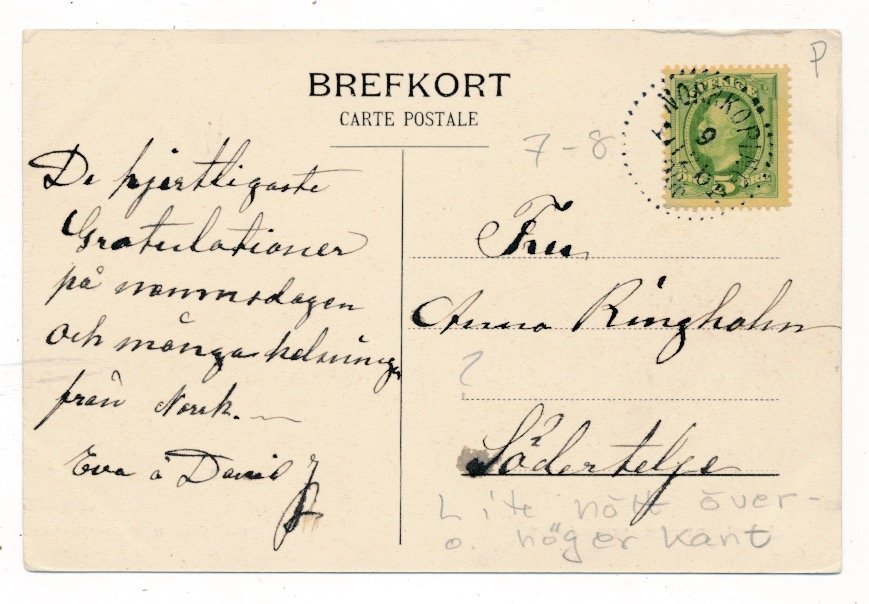 BREFKORT
CARTE POSTALE
P
7-8
NORRKÖPING
9
5
De hjertligaste
Gratulationer
på namnsdagen
och många helsninga
från Norrk.
Eva å David
Fru
Anna Ringholm
?
Södertelge
Lite nött över-
o. höger kant